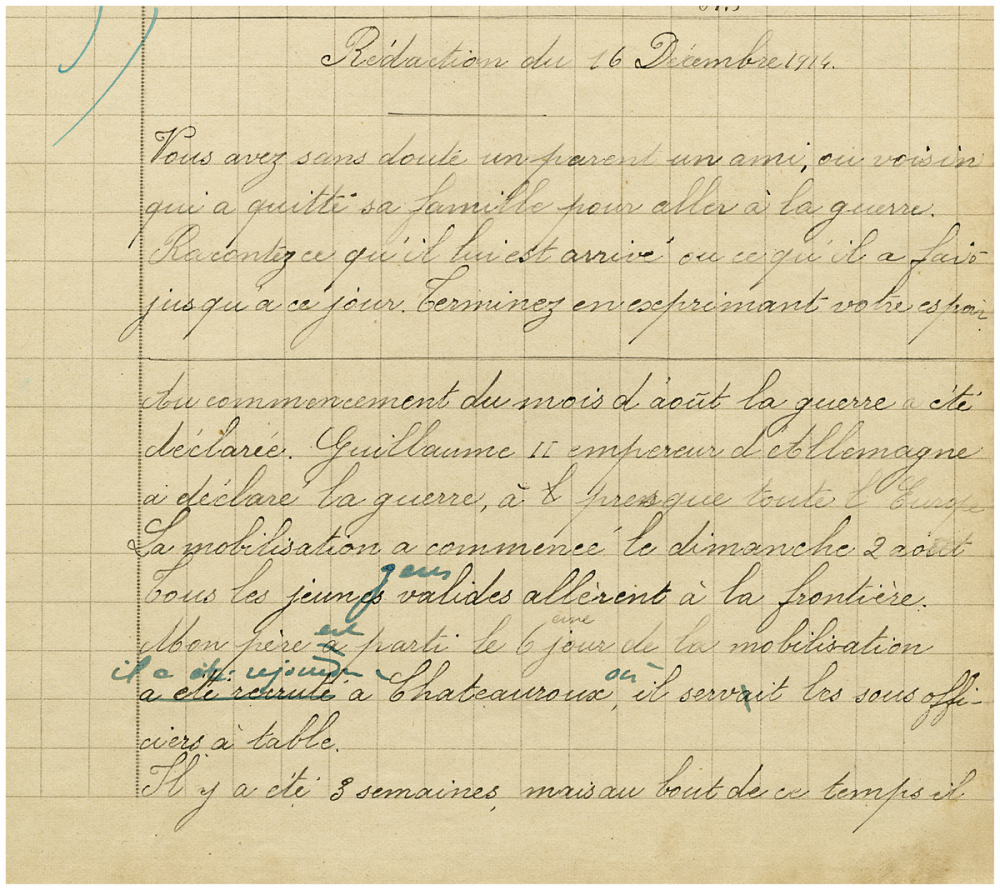 Rédaction du 16 Décembre 1914.
Vous avez sans doute un parent un ami, ou voisin
qui a quitté sa famille pour aller à la guerre.
Racontez ce qu'il lui est arrivé ou ce qu'il a fait
jusqu'à ce jour. Terminez en exprimant votre espoir
Au commencement du mois d'août la guerre a été
déclarée. Guillaume II empereur d'Allemagne
a déclaré la guerre, à presque toute l'Europe
La mobilisation a commencé le dimanche 2 août
gens
Tous les jeunes valides allèrent à la frontière.
est
Mon père a parti le 6 ème jour de la mobilisation
il a été rejoindre où
a été recruté à Chateauroux, il servait les sous offi-
ciers à table.
Il y a été 3 semaines, mais au bout de ce temps il